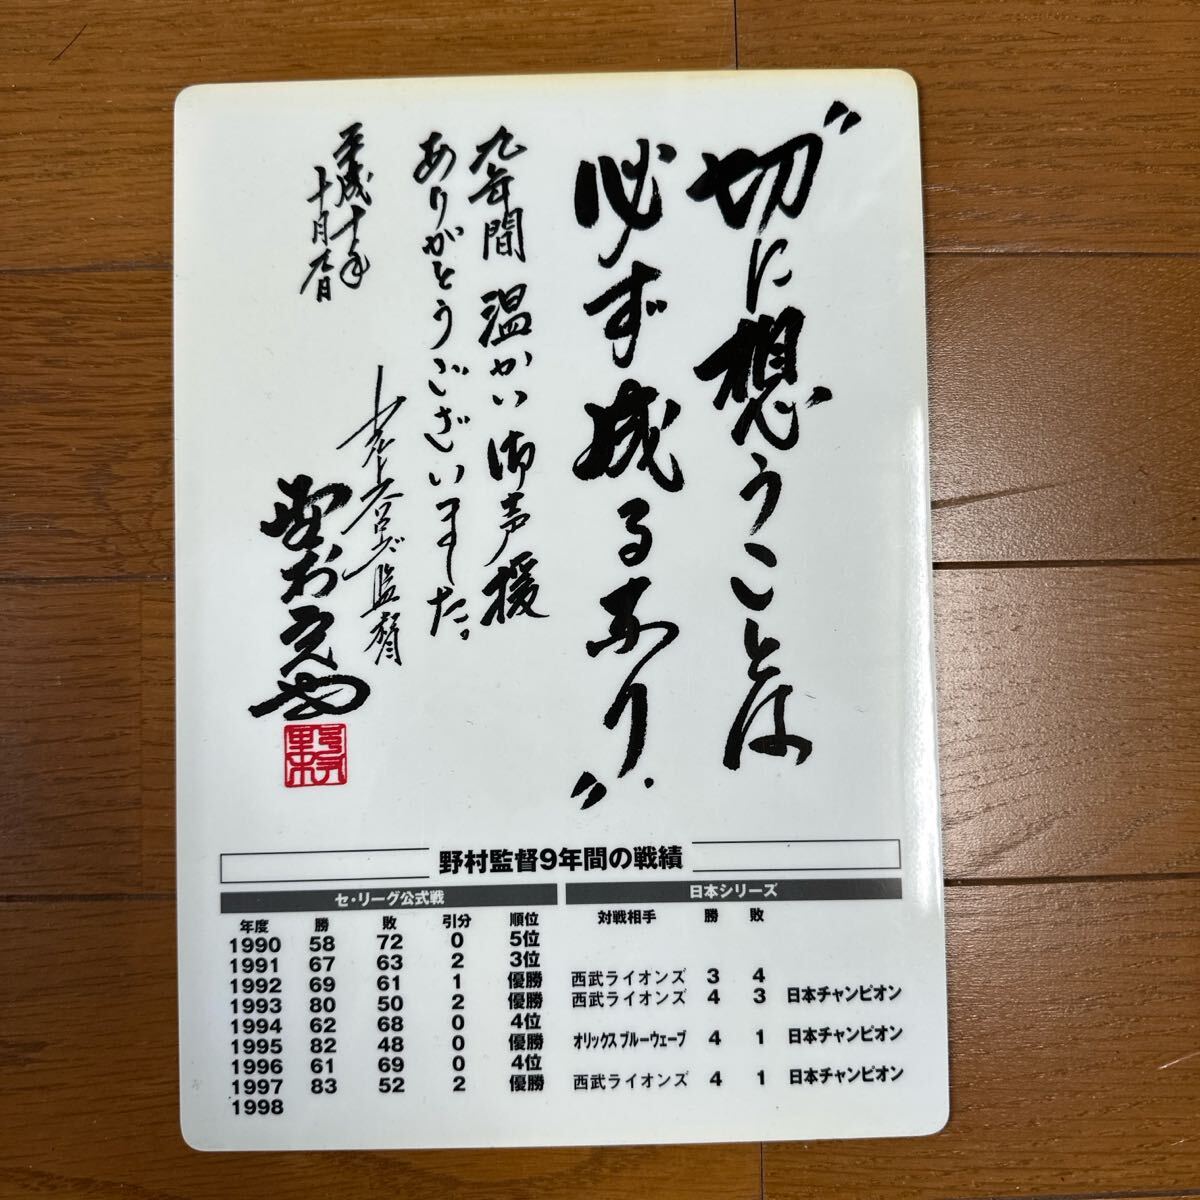 "切に想うことは
必ず成るあり"
九年間 温かい御声援
ありがとうございました。
平成十年
十月
ヤクルトスワローズ監督
野村克也
野村
野村監督9年間の戦績
セ・リーグ公式戦 日本シリーズ
年度 勝 敗 引分 順位 対戦相手 勝 敗
1990 58 72 0 5位
1991 67 63 2 3位
1992 69 61 1 優勝 西武ライオンズ 3 4
1993 80 50 2 優勝 西武ライオンズ 4 3 日本チャンピオン
1994 62 68 0 4位
1995 82 48 0 優勝 オリックスブルーウェーブ 4 1 日本チャンピオン
1996 61 69 0 4位
1997 83 52 2 優勝 西武ライオンズ 4 1 日本チャンピオン
1998